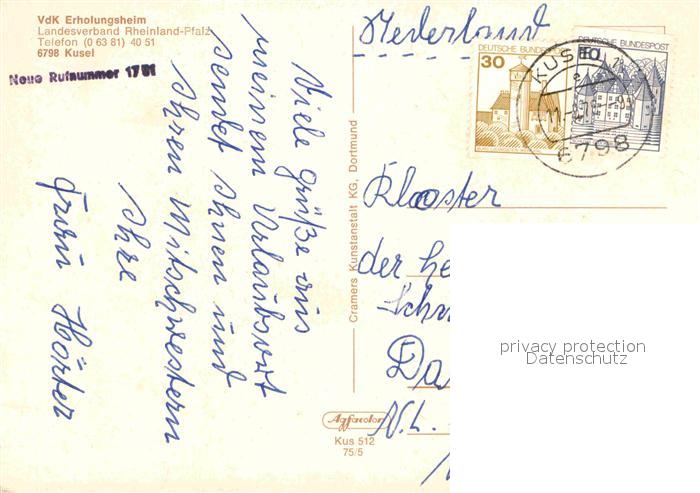 VdK Erholungsheim
Landesverband Rheinland-Pfalz
Telefon (0 63 81) 40 51
6798 Kusel
Neue Rufnummer 17 51
Viele Grüße aus
meinem Urlaubsort
sendet Ihnen und
Ihren Mitschwestern
Ihre
Frau Hörter
Cramers Kunstanstalt KG, Dortmund
Agfacolor
Kus 512
75/5
Nederland
DEUTSCHE BUNDESPOST
30
DEUTSCHE BUNDESPOST
10
KUSEL
6798
Klooster
der He
Schw
Da
N.L.
privacy protection
Datenschutz